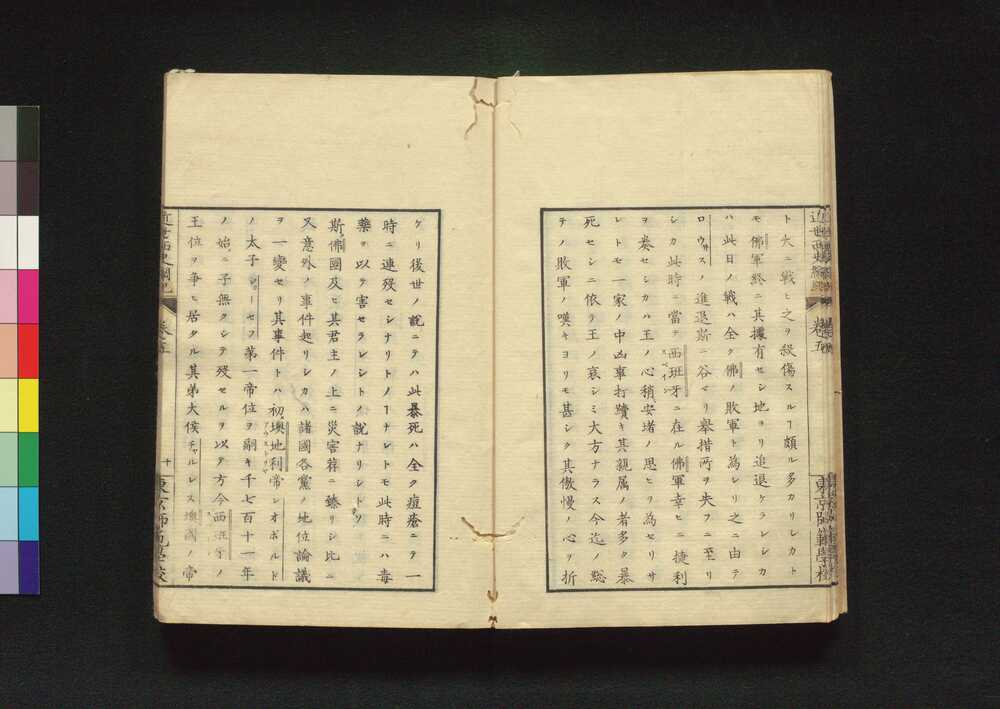 近世西史綱紀
卷五
東京師範學校
ト大ニ戰ヒ之ヲ殺傷スルヿ頗ル多カリシカト
モ佛軍終ニ其據有セシ地ヨリ追退ケラレシカ
ハ此日ノ戰ハ全ク佛ノ敗軍ト為レリ之ニ由テ
ロウ井スノ進退斯ニ谷マリ擧措所ヲ失フニ至リ
シカ此時ニ當テ西班牙ニ在ル佛軍幸ヒニ捷利
ヲ奏セシカハ王ノ心稍安堵ノ思ヒヲ為セリサ
レトモ一家ノ中凶事打續キ其親属ノ者多ク暴
死セシニ依リ王ノ哀シミ大方ナラス今迄ノ
テノ敗軍ノ嘆キヨリモ甚シク其傲慢ノ心ヲ折
ケリ後世ノ説ニテハ此暴死ハ全ク痘瘡ニテ一
時ニ連殁セシナリトノヿナレトモ此時ニハ毒
藥ヲ以テ害セラレシトノ説ナリシトゾ
斯佛國及ヒ其君主ノ上ニ災害荐ニ臻リシ比ニ
又意外ノ事件起リシカハ諸國各黨ノ地位論議
ヲ一變セリ其事件トハ初澳地利帝レオポルド
ノ太子ジョーセフ第一帝位ヲ嗣キ千七百十一年
ノ始ニ子無クシテ殁セルヲ以テ方今西班牙ノ
王位ヲ爭ヒ居タル其弟大侯チャルレス澳國ノ帝
近世西史綱紀
卷五
十
東京師範學校